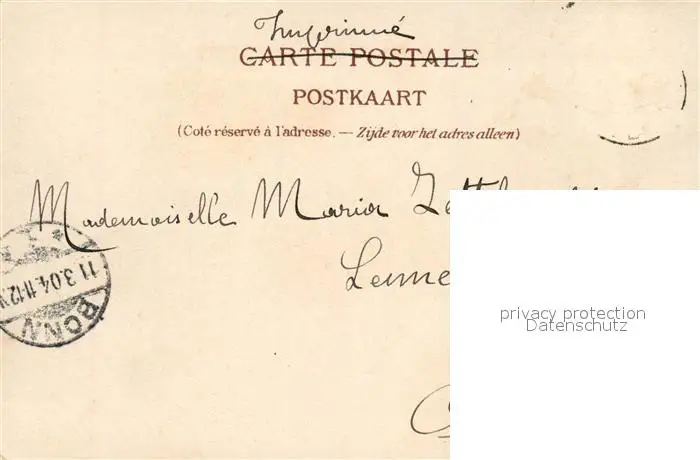 Imprimé
CARTE POSTALE
POSTKAART
(Coté réservé à l'adresse. — Zijde voor het adres alleen)
Mademoiselle Maria
BONN
11.3.04.11-12.V
privacy protection
Datenschutz